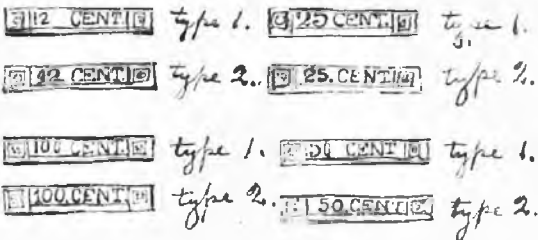 12 CENT. type 1. 25 CENT. type 1.
12 CENT. type 2. 25. CENT. type 2.
100 CENT. type 1. 50 CENT type 1.
100. CENT. type 2. 50. CENT. type 2.